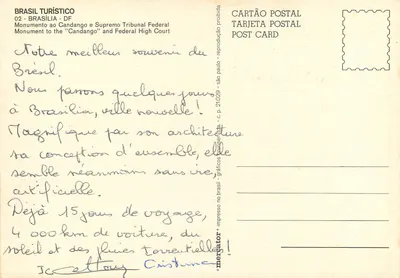 BRASIL TURÍSTICO
02 - BRASÍLIA - DF
Monumento ao Candango e Supremo Tribunal Federal
Monument to the "Candango" and Federal High Court
Notre meilleur souvenir du
Brésil.
Nous passons quelques jours
à Brasilia, ville nouvelle !
Magnifique par son architecture
sa conception d'ensemble, elle
semble néanmoins sans vie,
artificielle.
Déjà 15 jours de voyage,
4 000 km de voiture, du
soleil et des pluies torrentielles !
Cristina
mercator
impresso no brasil - gráficos
são paulo - reprodução proibida
CARTÃO POSTAL
TARJETA POSTAL
POST CARD